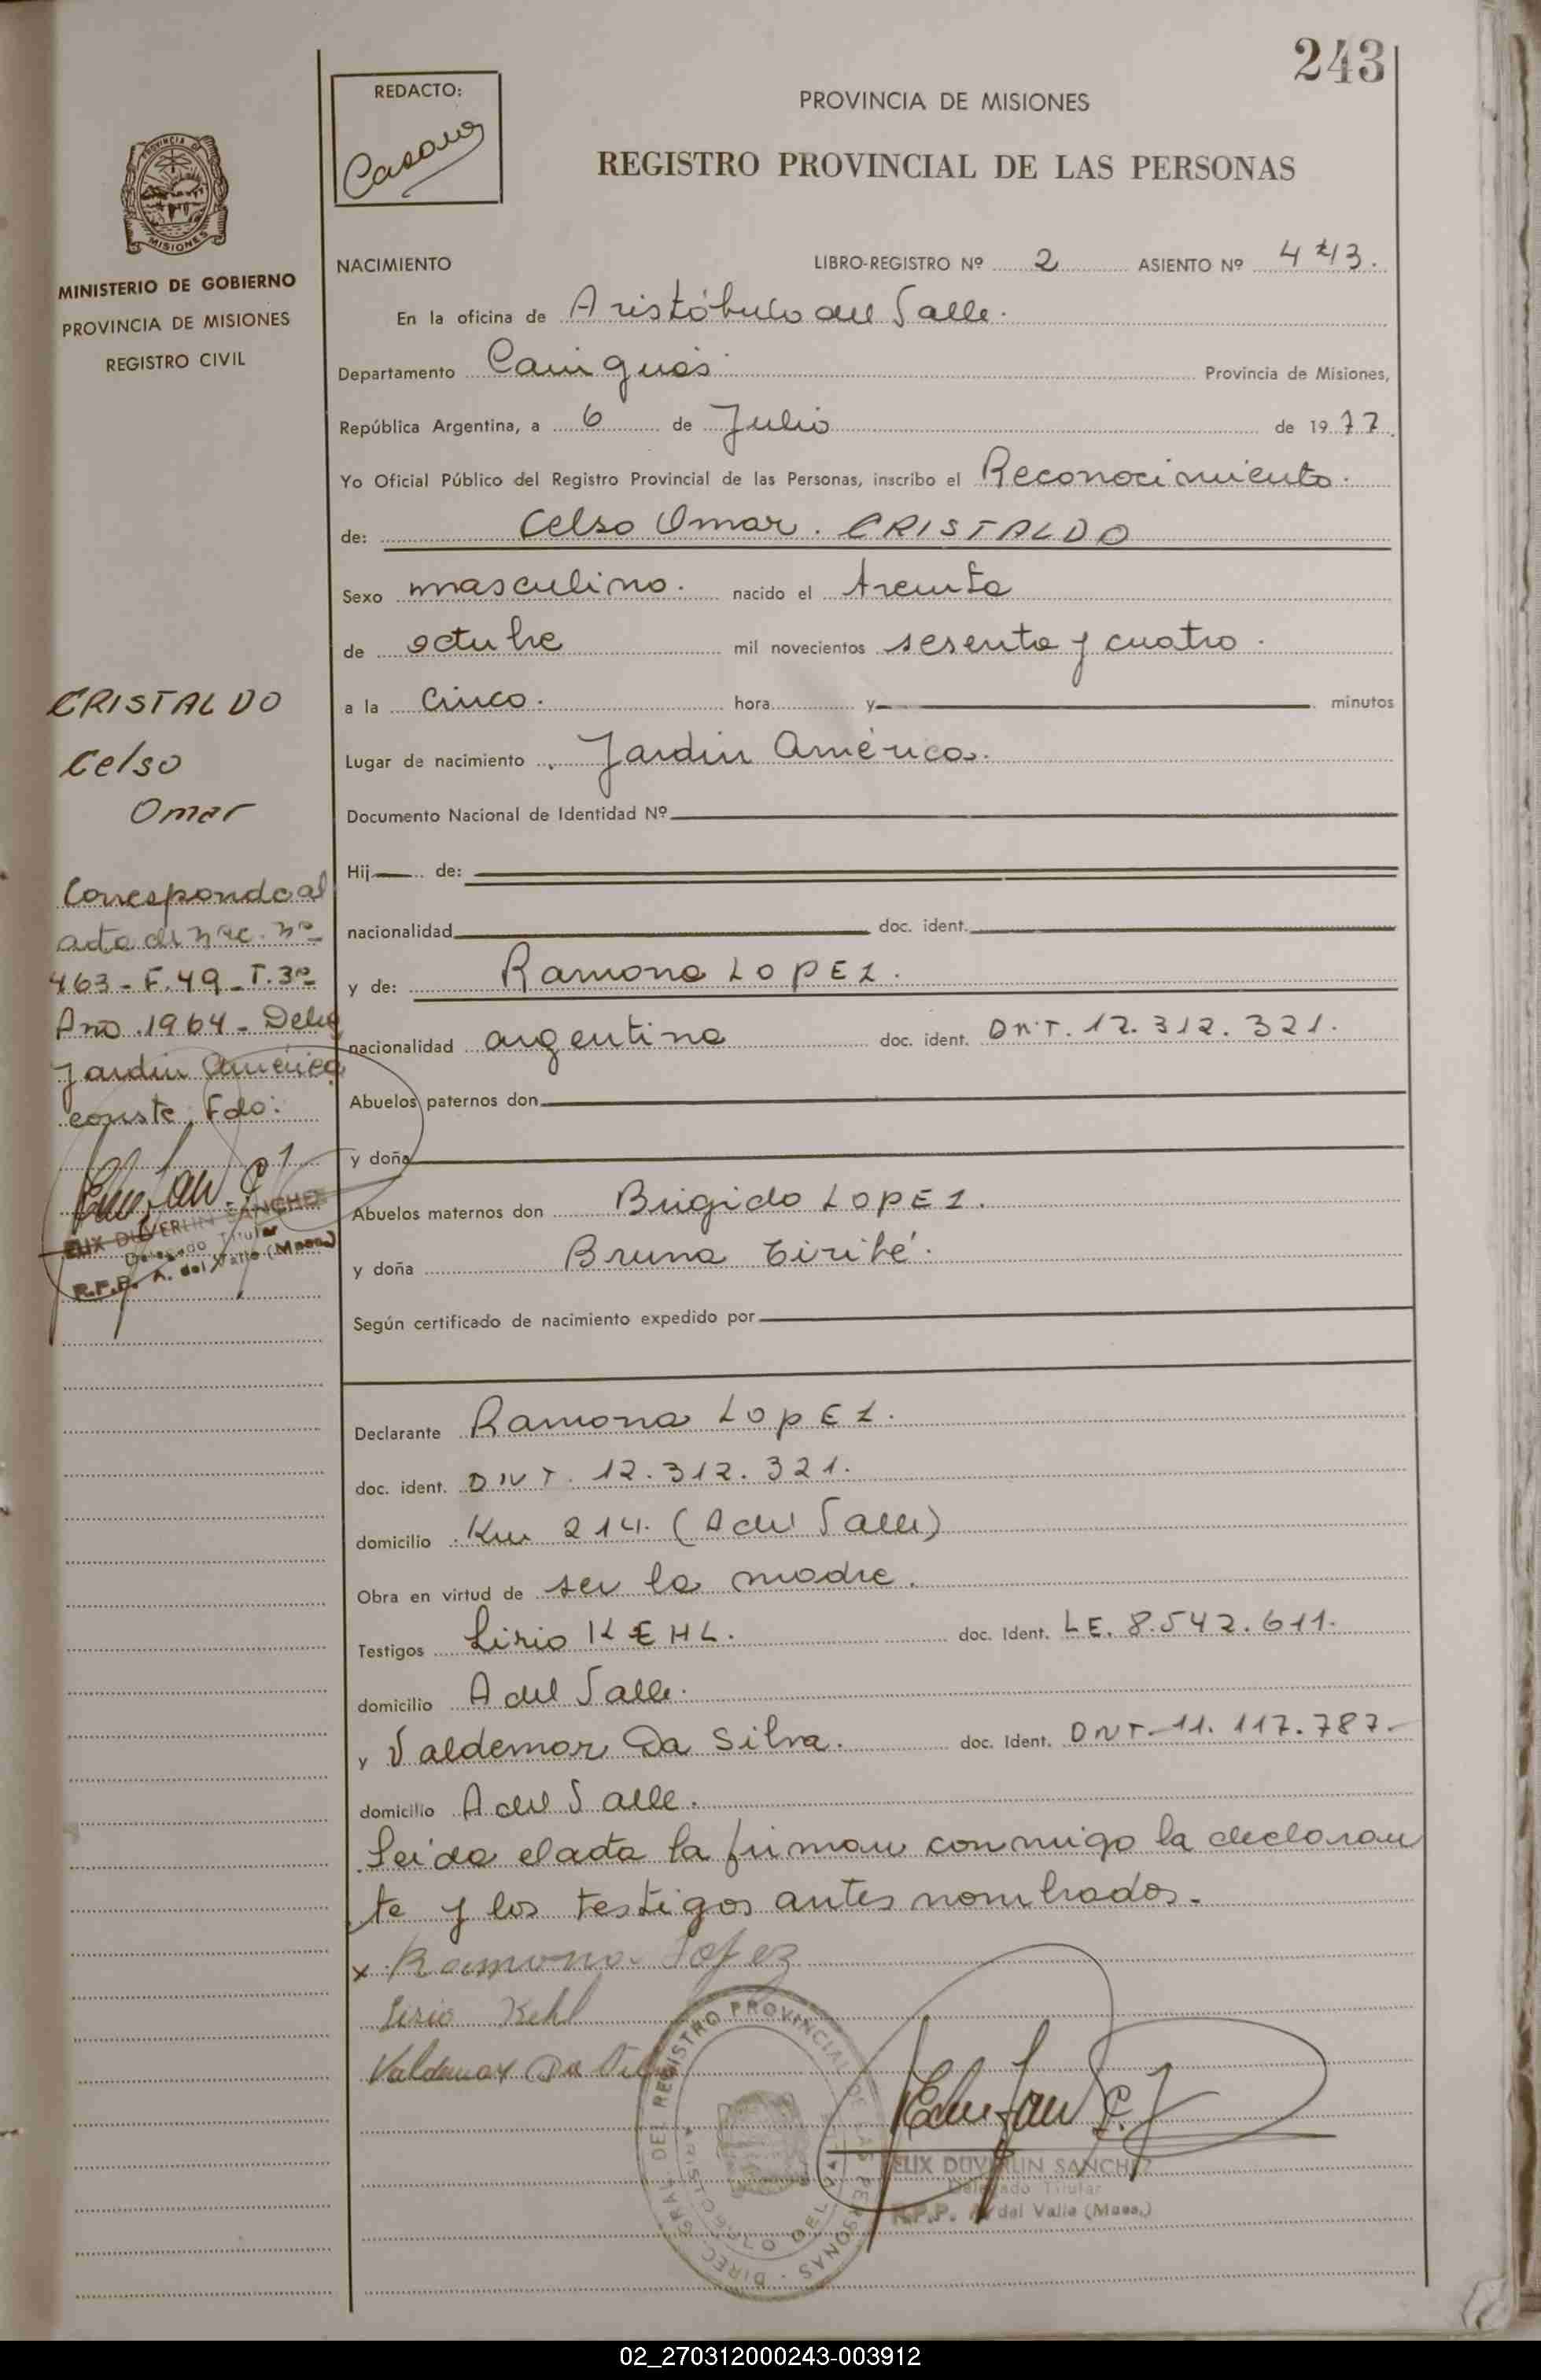 243
REDACTO:
Casano
PROVINCIA DE MISIONES
REGISTRO PROVINCIAL DE LAS PERSONAS
PROVINCIA DE
MISIONES
MINISTERIO DE GOBIERNO
PROVINCIA DE MISIONES
REGISTRO CIVIL
NACIMIENTO LIBRO-REGISTRO Nº 2 ASIENTO Nº 443.
En la oficina de Aristóbulo del Valle.
Departamento Cainguás Provincia de Misiones,
República Argentina, a 6 de Julio de 1977.
Yo Oficial Público del Registro Provincial de las Personas, inscribo el Reconocimiento.
de: Celso Omar. CRISTALDO
Sexo masculino. nacido el treinta
de octubre mil novecientos sesenta y cuatro.
a la Cinco. hora y minutos
Lugar de nacimiento Jardin América.
Documento Nacional de Identidad Nº
Hij de:
nacionalidad doc. ident.
y de: Ramona LOPEZ.
nacionalidad argentina doc. ident. DNI. 12.312.321.
Abuelos paternos don
y doña
Abuelos maternos don Brigido LOPEZ.
y doña Bruna Tiribé.
Según certificado de nacimiento expedido por
CRISTALDO
Celso
Omar
Corresponde al
acta de nac. nº
463 - F. 49 - T. 3º
Año 1964 - Deleg
Jardin América
conste, Fdo:
ELIX DUVERLIN SANCHEZ
Delegado Titular
R.P.P. A. del Valle (Mnes.)
Declarante Ramona LOPEZ.
doc. ident. DNI. 12.312.321.
domicilio Km 214. (A del Valle)
Obra en virtud de ser la madre.
Testigos Lirio KEHL. doc. Ident. LE. 8.542.611.
domicilio A del Valle.
y Valdemar Da Silva. doc. Ident. DNI - 11.117.787.-
domicilio A del Valle.
Leida el acta la firman conmigo la declaran
te y los testigos antes nombrados.-
x Ramona Lopez
Lirio Kehl
Valdemar Da Silva
DIREC. GRAL. DEL REGISTRO PROVINCIAL DE LAS PERSONAS
ELIX DUVERLIN SANCHEZ
Delegado Titular
R.P.P. A. del Valle (Mnes.)
02_270312000243-003912